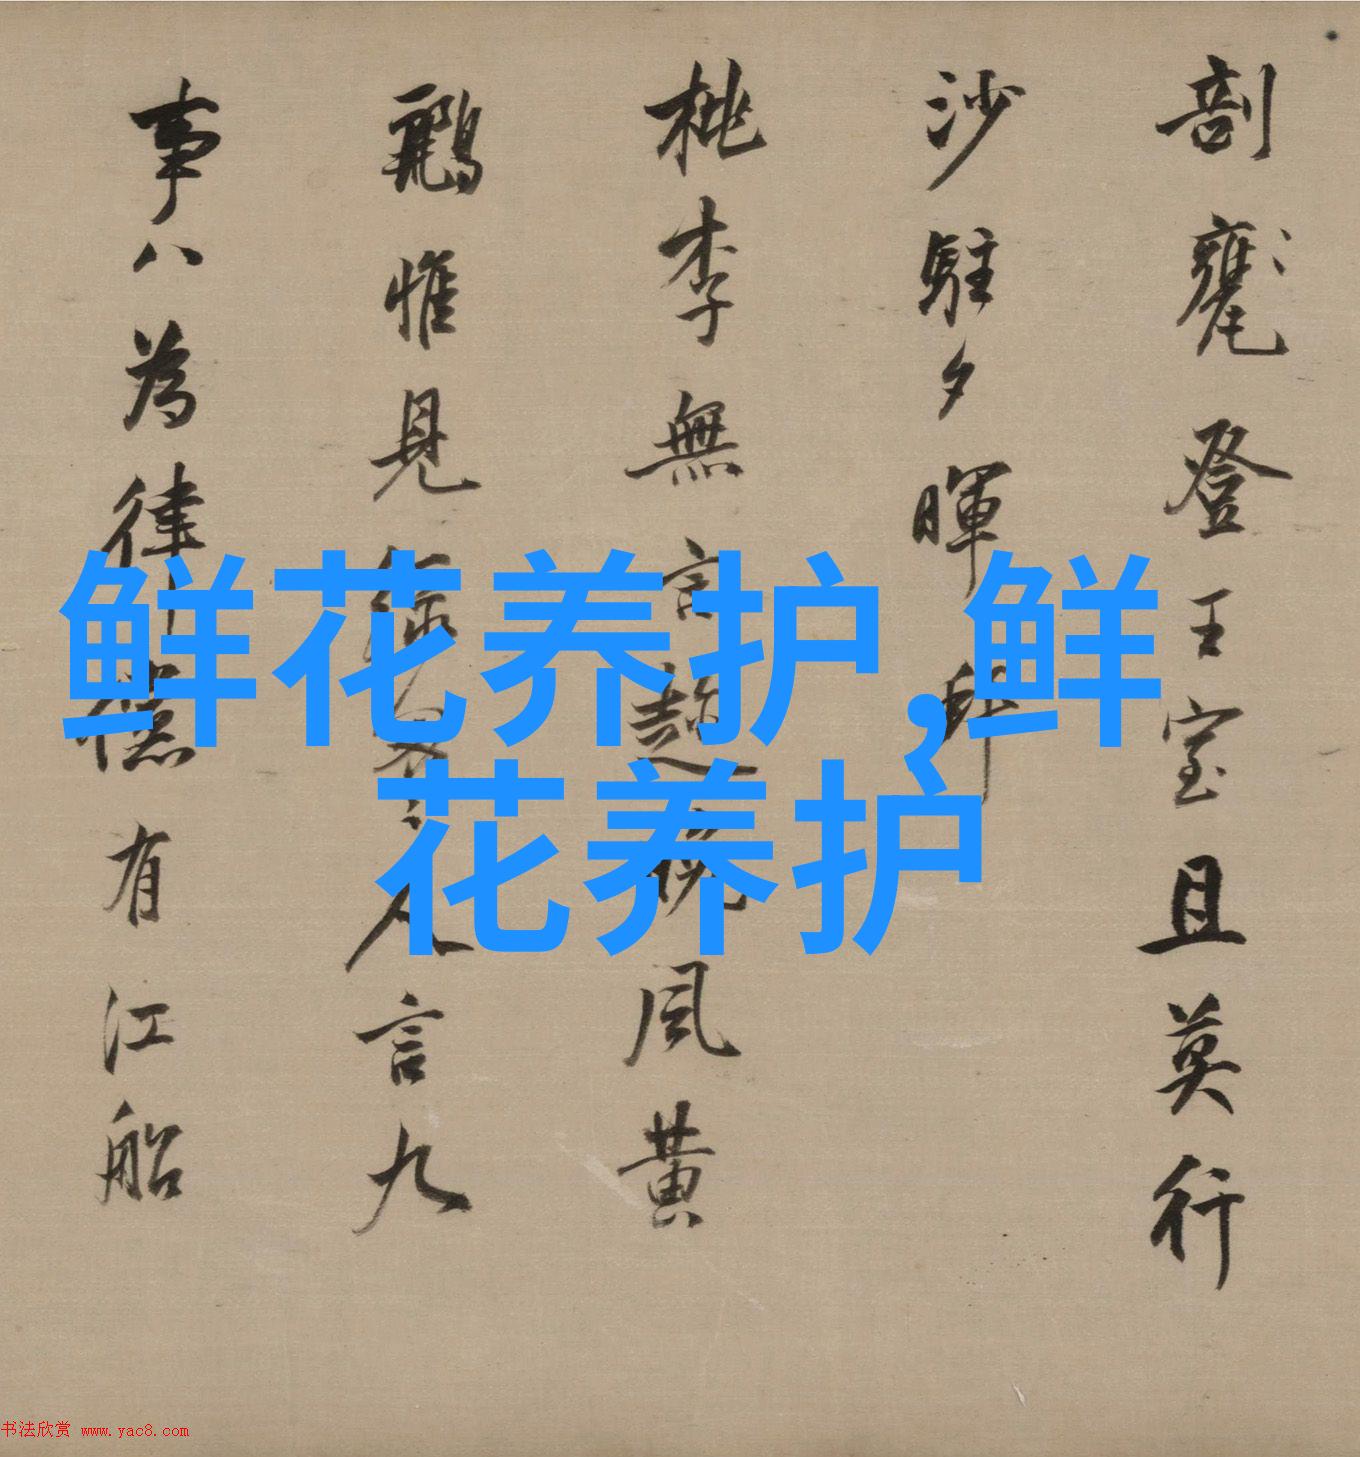 剖甕登王室且莫行
沙駐夕暉
桃李無言 風黄
鵩惟見 言九
事八為律 有江船
鲜花养护,鲜
花养护
书法欣赏 www.yac8.com